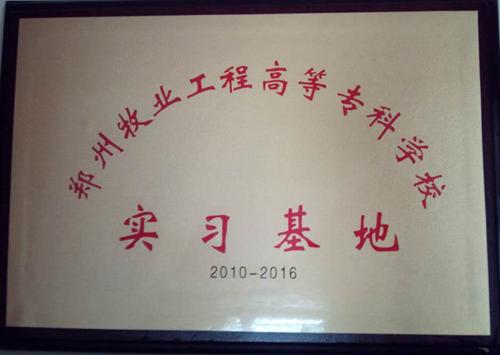 郑州牧业工程高等专科学校
实习基地
2010-2016